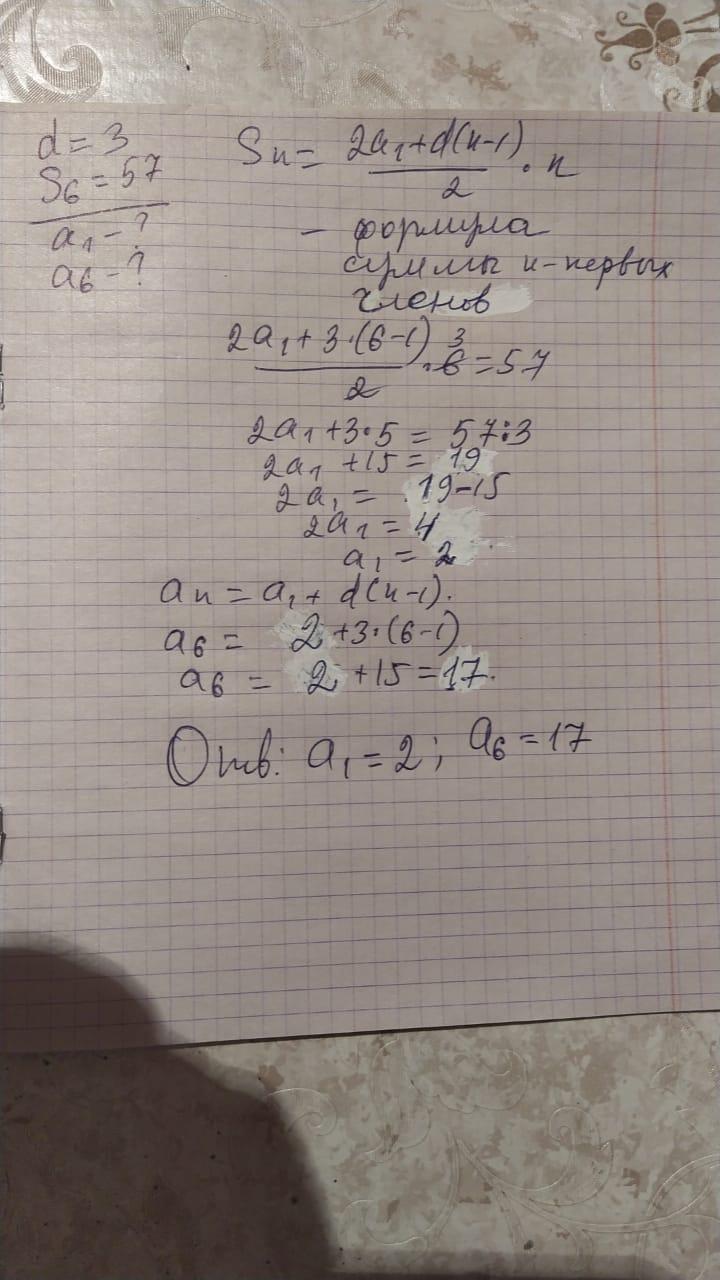 d = 3
S₆ = 57
a₁ - ?
a₆ - ?
Sn = (2a₁ + d(n-1))/2 · n
- формула
суммы n-первых
членов
(2a₁ + 3·(6-1))/2 · 6 = 57 3
2a₁ + 3·5 = 57:3
2a₁ + 15 = 19
2a₁ = 19-15
2a₁ = 4
a₁ = 2
an = a₁ + d(n-1).
a₆ = 2 + 3·(6-1)
a₆ = 2 + 15 = 17.
Отв: a₁ = 2; a₆ = 17